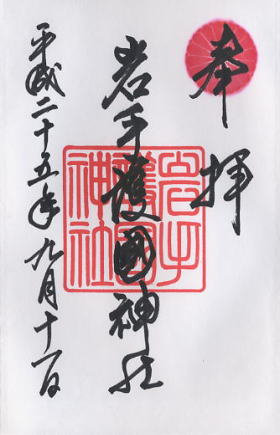 奉拝
岩手護國神社
平成二十五年九月十一日
岩手
護國
神社